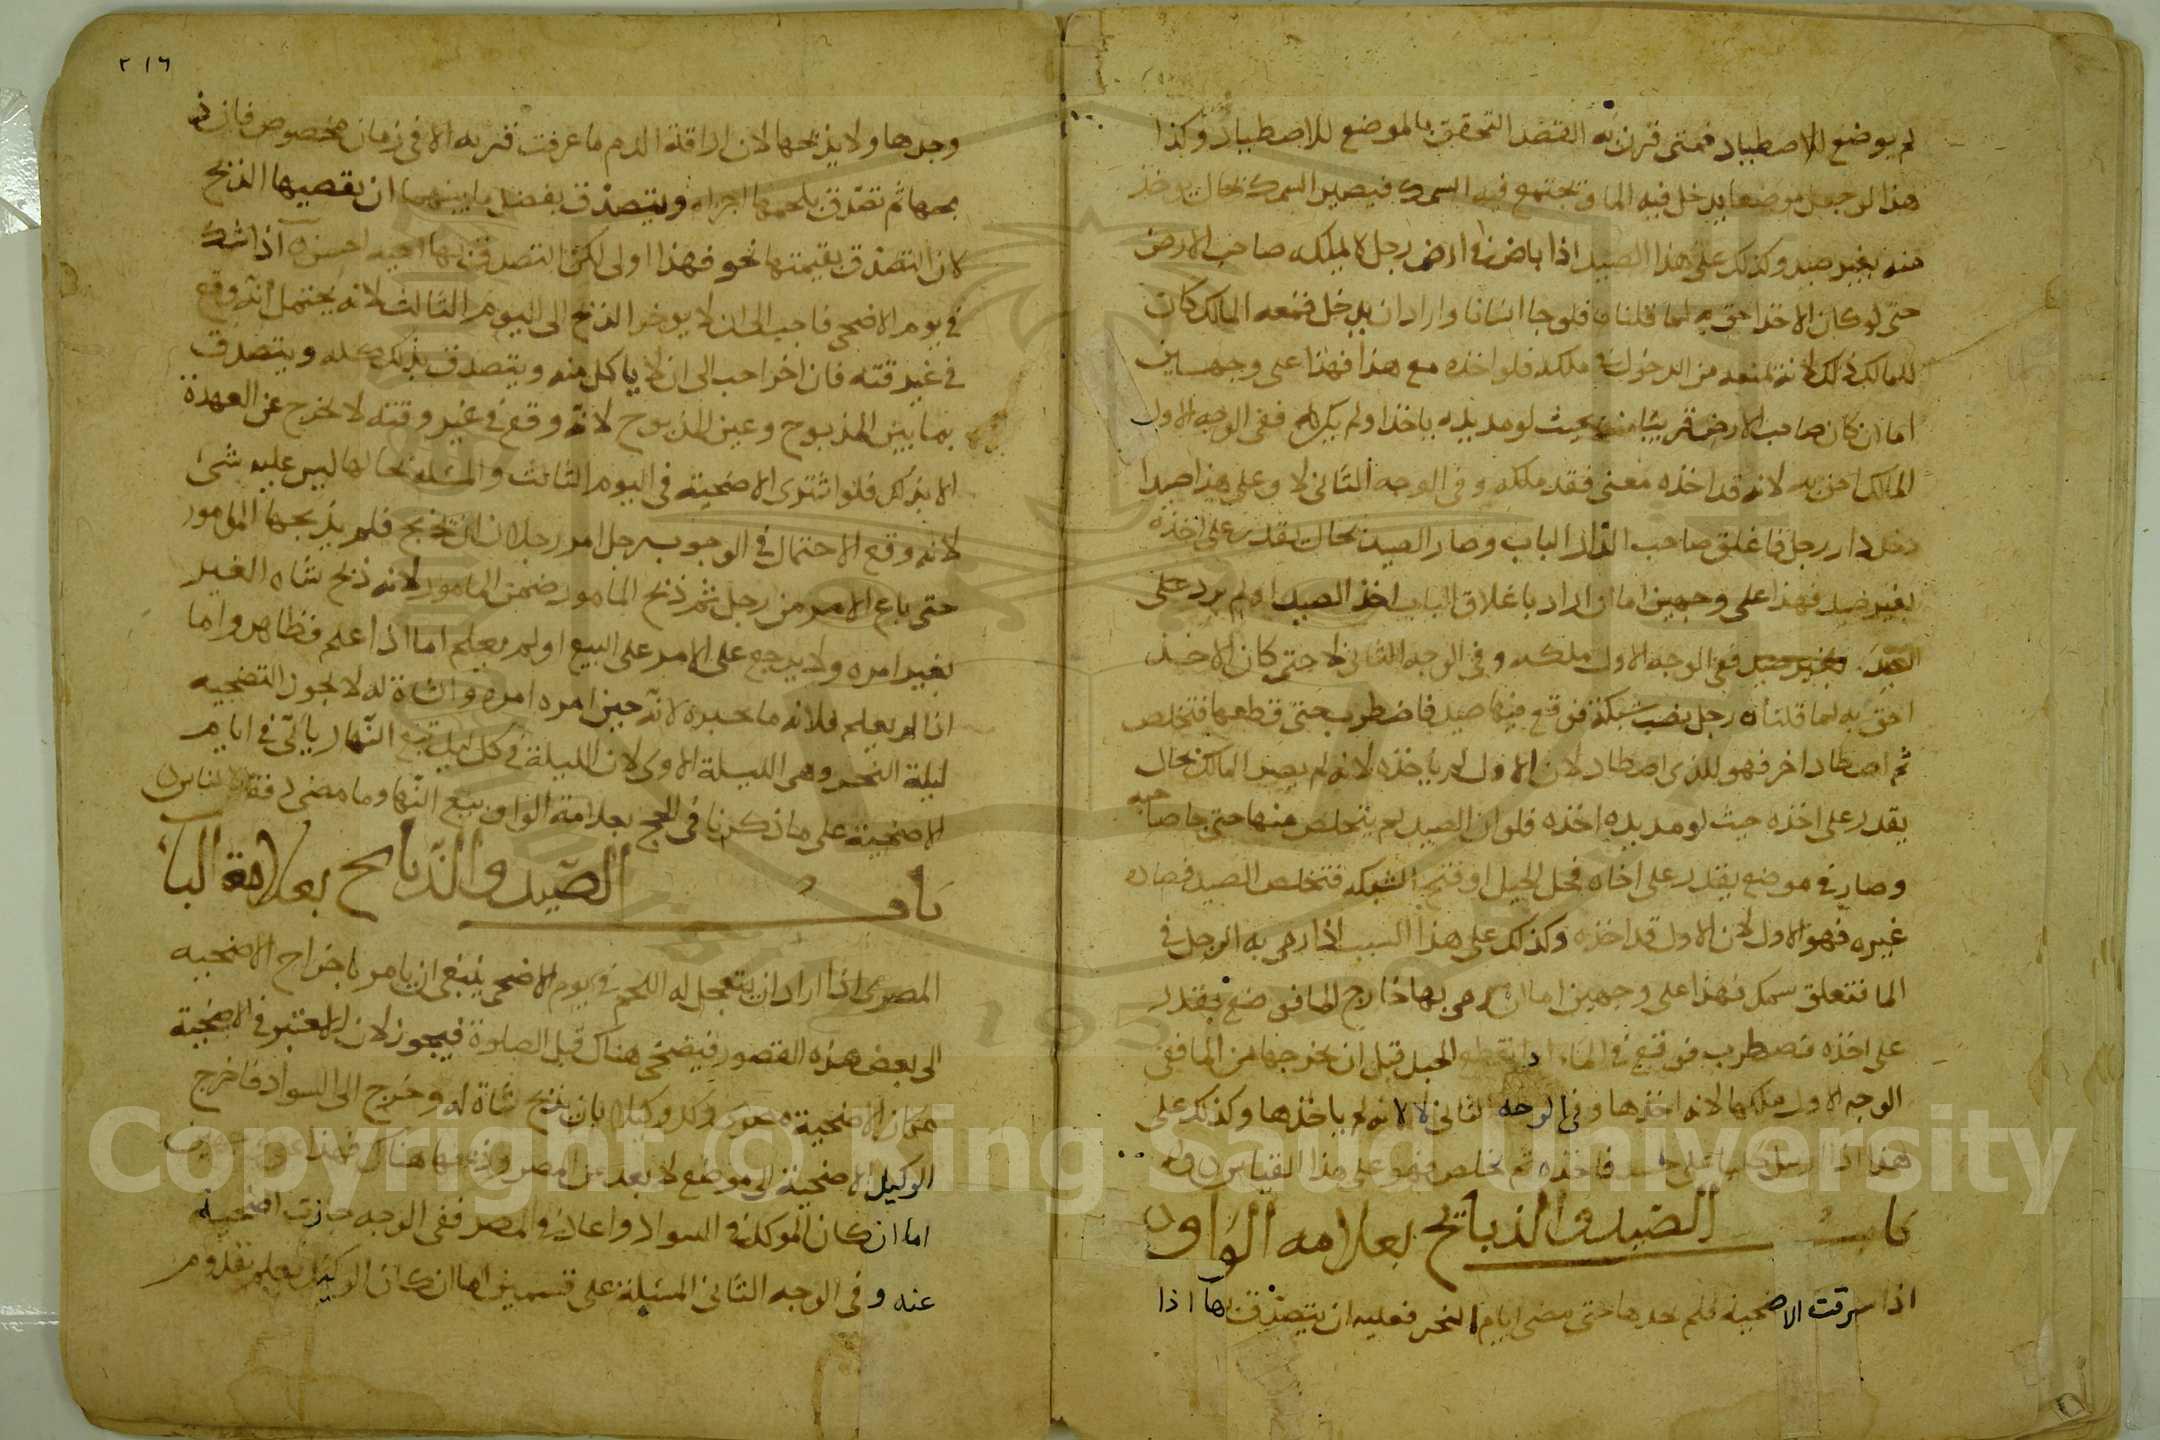 لم يوضع للاصطياد فمتى قرن به القصد التحقق بالموضع للاصطياد وكذا
هذا لو جعل موضعا يدخل فيه الما و يجتمع فيه السمك فيصير السمك بحال يوخذ
منه بغير صيد وكذلك على هذا الصيد اذا باض في ارض رجل لا يملكه صاحب الارض
حتى لو كان الاخذ احق به لما قلنا فلو جا انسانا واراد ان يدخل فمنعه المالك كان
للمالك ذلك لانه يمنعه من الدخول في ملكه فلو اخذه مع هذا فهذا على وجهين
اما ان كان صاحب الارض قريبا منه بحيث لو مد يده ياخذ اولم يكن ففى الوجه الاول
المالك احق به لانه قد اخذه معنى فقد ملكه وفى الوجه الثانى لا وعلى هذا صيد
دخل دار رجل فاغلق صاحب الدار الباب وصار الصيد بحال يقدر على اخذه
بغير صيد فهذا على وجهين اما ان اراد باغلاق الباب اخذ الصيد او لم يرد على
ففى الوجه الاول ملكه وفى الوجه الثانى لا حتى كان الاخذ
احق به لما قلنا رجل نصب شبكة فوقع فيها صيد فاضطرب حتى قطعها فتخلص
ثم اصطاد اخر فهو للذى اصطاد لان الاول لم ياخذه لانه لم يصر المالك بحال
يقدر على اخذه حيث لو مد يده اخذه فلو ان الصيد لم يتخلص منها حتى جا صاحبه
وصار فى موضع يقدر على اخذه فتخلص الصيد فصاده
غيره فهو للاول لان الاول قد اخذه وكذلك على هذا السبب اذا رمى به الرجل فى
الما فتعلق سمك فهذا على وجهين اما ان رمى بها خارج الما فى موضع يقدر
على اخذه فتضطرب فوقع فى الماء الحبل قبل ان يخرجها من الما ففى
الوجه الاول ملكها لانه اخذها وفى الوجه الثانى لا لانه لم ياخذها وكذلك على
هذا اذا ارسل على صيد فاخذه ثم تخلص فهو على هذا القياس
كتاب الصيد والذبائح بعلامه الواو
اذا سرقت الاضحية فلم يجدها حتى مضى ايام النحر فعليه ان يتصدق بها اذا
٢١٦
وجدها ولا يذبحها لان اراقة الدم ما عرفت قربه الا فى زمان مخصوص فان ذ
بحها ثم تصدق بلحمها اجزاه ويتصدق بفضل ما بينهما ان نقصها الذبح
لان التصدق بقيمتها فهذا اولى لكن التصدق بها احيه احسن اذا شك
فى يوم الاضحى فاحب الى ان لا يوخر الذبح الى اليوم الثالث لانه يحتمل انه وقع
فى غير وقته فان اخر احب الى ان لا ياكل منه ويتصدق بذلك كله ويتصدق
بما بين المذبوح وغير المذبوح لانه وقع فى غير وقته لا يخرج عن العهدة
الا بذلك فلو اشترى الاضحية فى اليوم الثالث والمسئلة بحالها ليس عليه شئ
لانه وقع الاحتمال فى الوجوب رجل امر رجلا ان يذبح فلم يذبحها المامور
حتى باع الامر من رجل ثم ذبح المامور ضمن المامور لانه ذبح شاه الغير
بغير امره ولا يرجع على الامر على البيع او لم يعلم اما اذا علم فظاهر واما
اذا لم يعلم فلانه ما لانه حين امره امره والشاة له لا يجوز التضحيه
ليلة النحر وهى الليلة الاولى لان الليلة فى كل تبع النهار ياتى فى ايام
الاضحية على ما ذكرنا فى الحج بعلامة الواو تبع النهار وما مضى رفقا بالناس
باب الصيد والذبايح بعلامة البا
المصرى اذا اراد ان يتعجل له اللحم فى يوم الاضحى ينبغى ان يامر باخراج الاضحيه
الى بعض هذه القصور فيضحى هناك قبل الصلوة فيجوز لان المعتبر فى الاضحية
مكان الاضحية وكل وكيلا بان يذبح شاة له وخرج الى السواد فاخرج
الوكيل الاضحية الى موضع لا يعد من المصر وذبحها هناك فهذا على وجهين
اما ان كان الموكل فى السواد واعاد فى المصر ففى الوجه جازت اضحية
عنه وفى الوجه الثانى المسئلة على قسمين اما ان كان الوكيل يعلم بقدوم